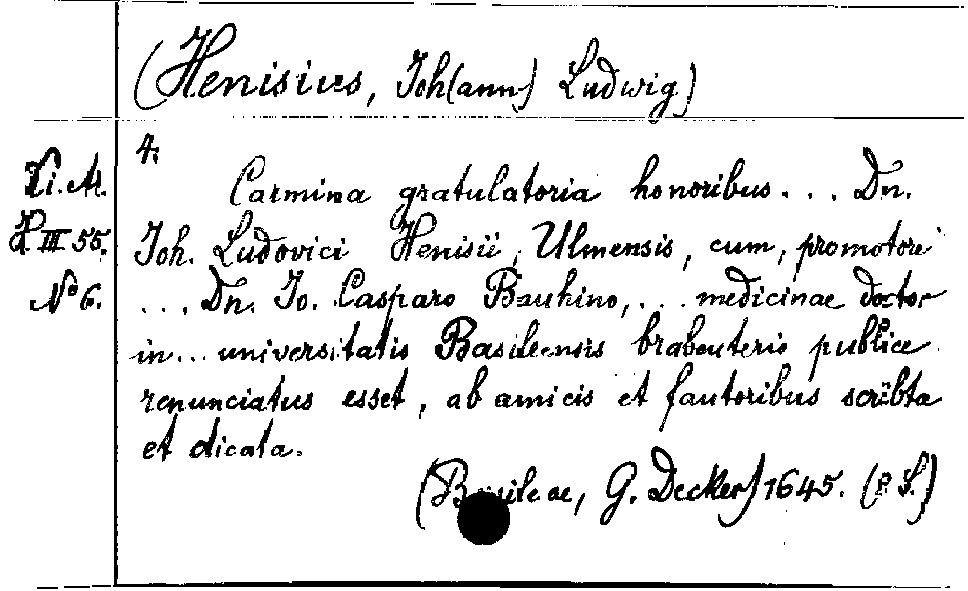 (Henisius, Joh(ann) Ludwig)
4.
Carmina gratulatoria honoribus... Dn.
Joh. Ludovici Henisii, Ulmensis, cum, promotore
... Dn. Jo. Casparo Bauhino,... medicinae doctor
in... universitatis Basileensis brabeuterio publice
renunciatus esset, ab amicis et fautoribus scribta
et dicata.
(Basileae, G. Decker) 1645. ( S.)
Vi. Al.
H III 55.
No 6.